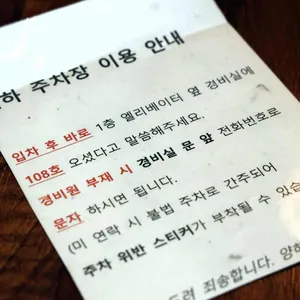 하 주차장 이용 안내
입차 후 바로 1층 엘리베이터 옆 경비실에
108호 오셨다고 말씀해주세요.
경비원 부재 시 경비실 문 앞 전화번호로
문자 하시면 됩니다.
(미 연락 시 불법 주차로 간주되어
주차 위반 스티커가 부착될 수 있습
드려 죄송합니다. 양해